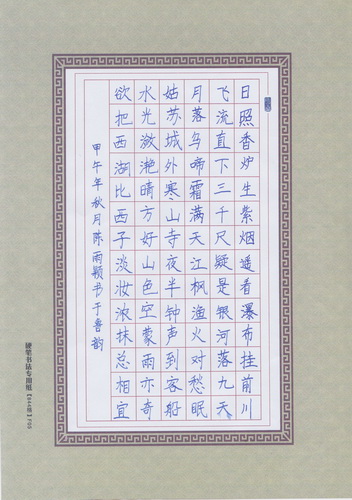 日照香炉生紫烟遥看瀑布挂前川
飞流直下三千尺疑是银河落九天
月落乌啼霜满天江枫渔火对愁眠
姑苏城外寒山寺夜半钟声到客船
水光潋滟晴方好山色空蒙雨亦奇
欲把西湖比西子淡妆浓抹总相宜
甲午年秋月陈雨颖书于鲁韵
硬笔书法专用纸